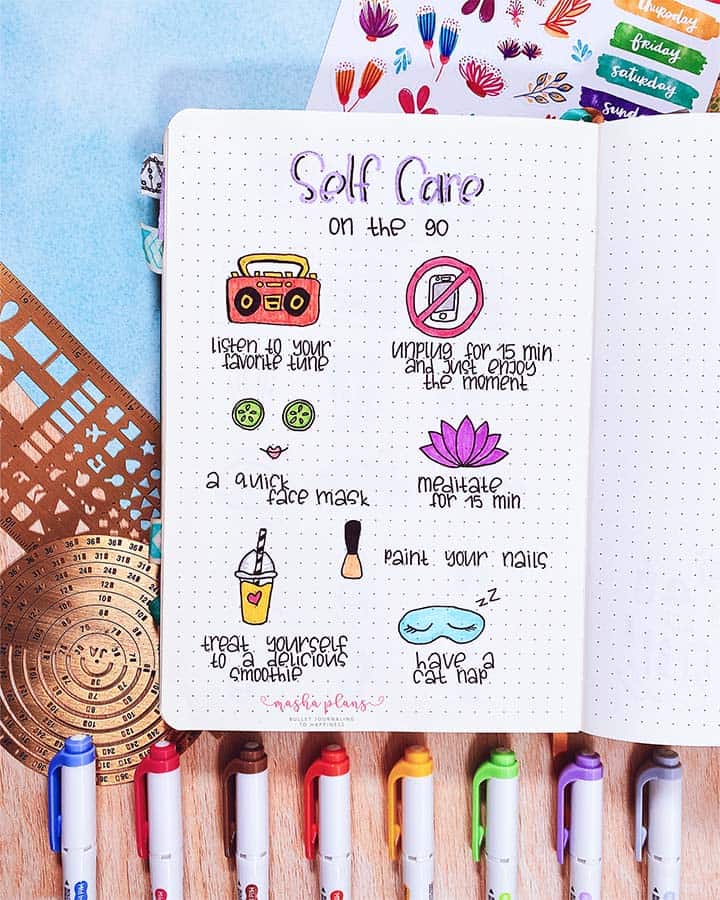 Thursday
Friday
Saturday
Self Care
on the go
listen to your
favorite tune
unplug for 15 min
and just enjoy
the moment
a quick
face mask
meditate
for 15 min
paint your nails
treat yourself
to a delicious
smoothie
zz
have a
cat nap
masha plans
BULLET JOURNALING
TO HAPPINESS